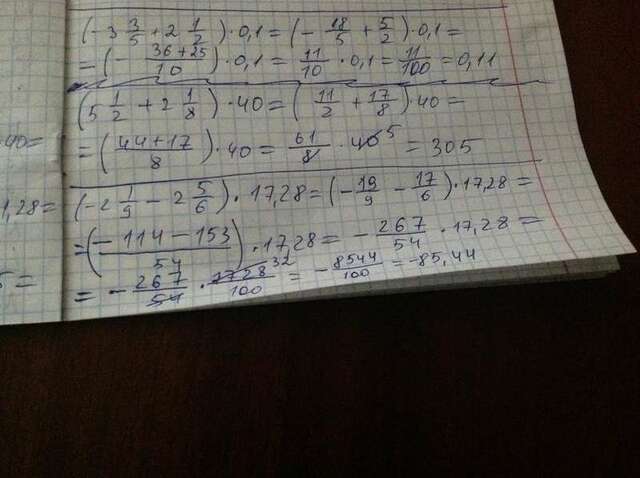 (-3 3/5 + 2 1/2) · 0,1 = (- 18/5 + 5/2) · 0,1 =
= (- 36+25/10) · 0,1 = 11/10 · 0,1 = 11/100 = 0,11
(5 1/2 + 2 1/8) · 40 = (11/2 + 17/8) · 40 =
40=
= (44+17/8) · 40 = 61/8 · 40 5 = 305
1,28=
(-2 1/9 - 2 5/6) · 17,28 = (- 19/9 - 17/6) · 17,28 =
= (-114-153/54) · 17,28 = - 267/54 · 17,28 =
5=
= - 267/54 · 1728 32/100 = - 8544/100 = -85,44